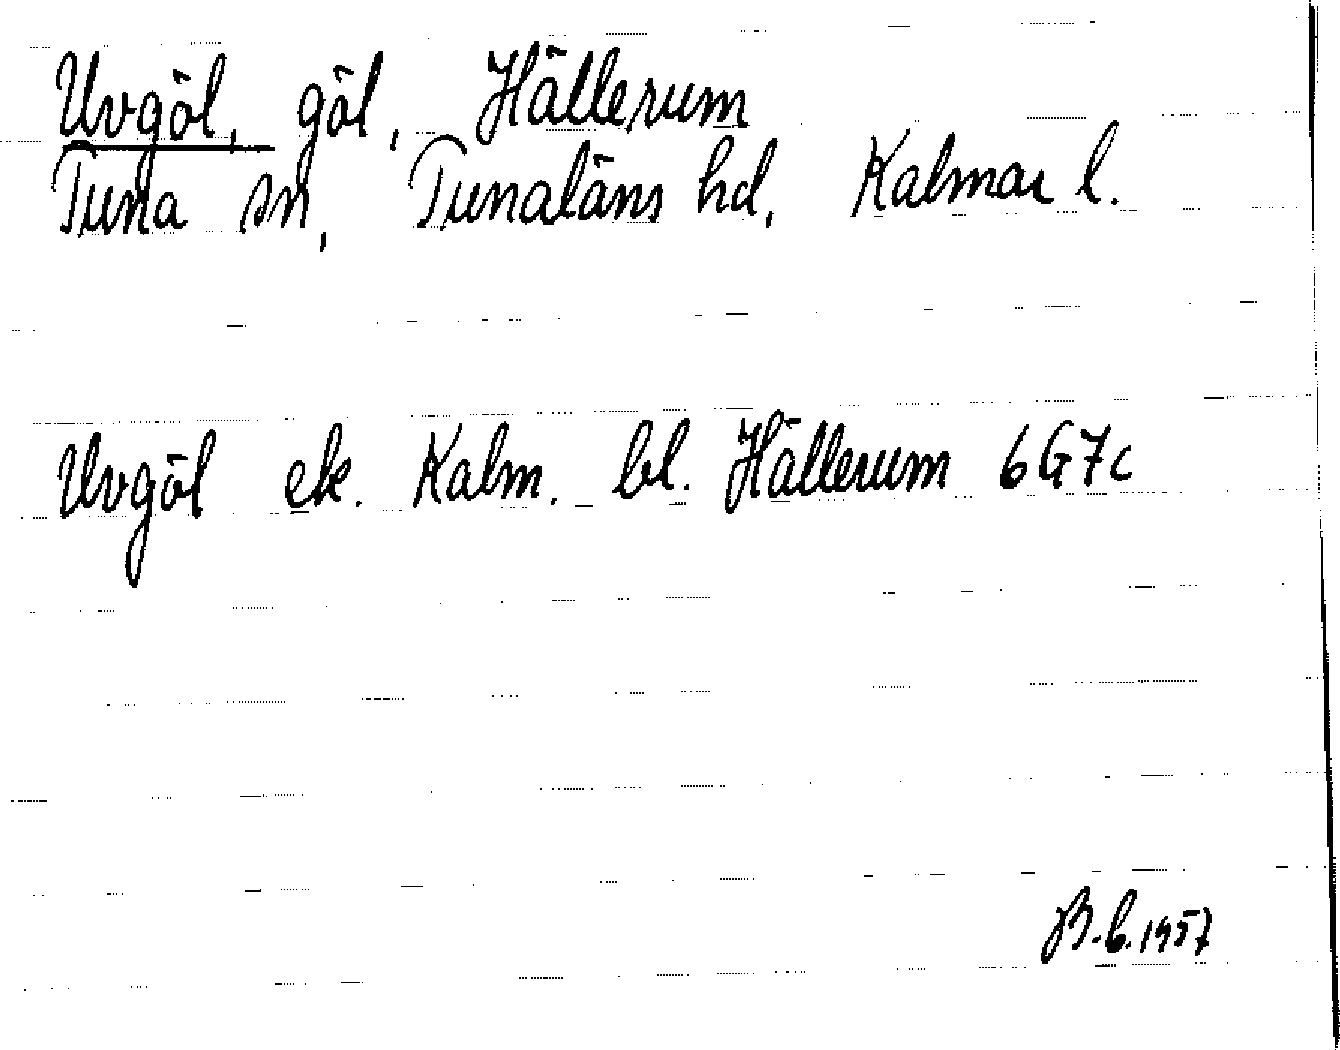 Uvgöl, göl, Hällerum
Tuna sn, Tunaläns hd, Kalmar l.
Uvgöl ek. Kalm. bl. Hällerum 6G7c
B.b. 1957